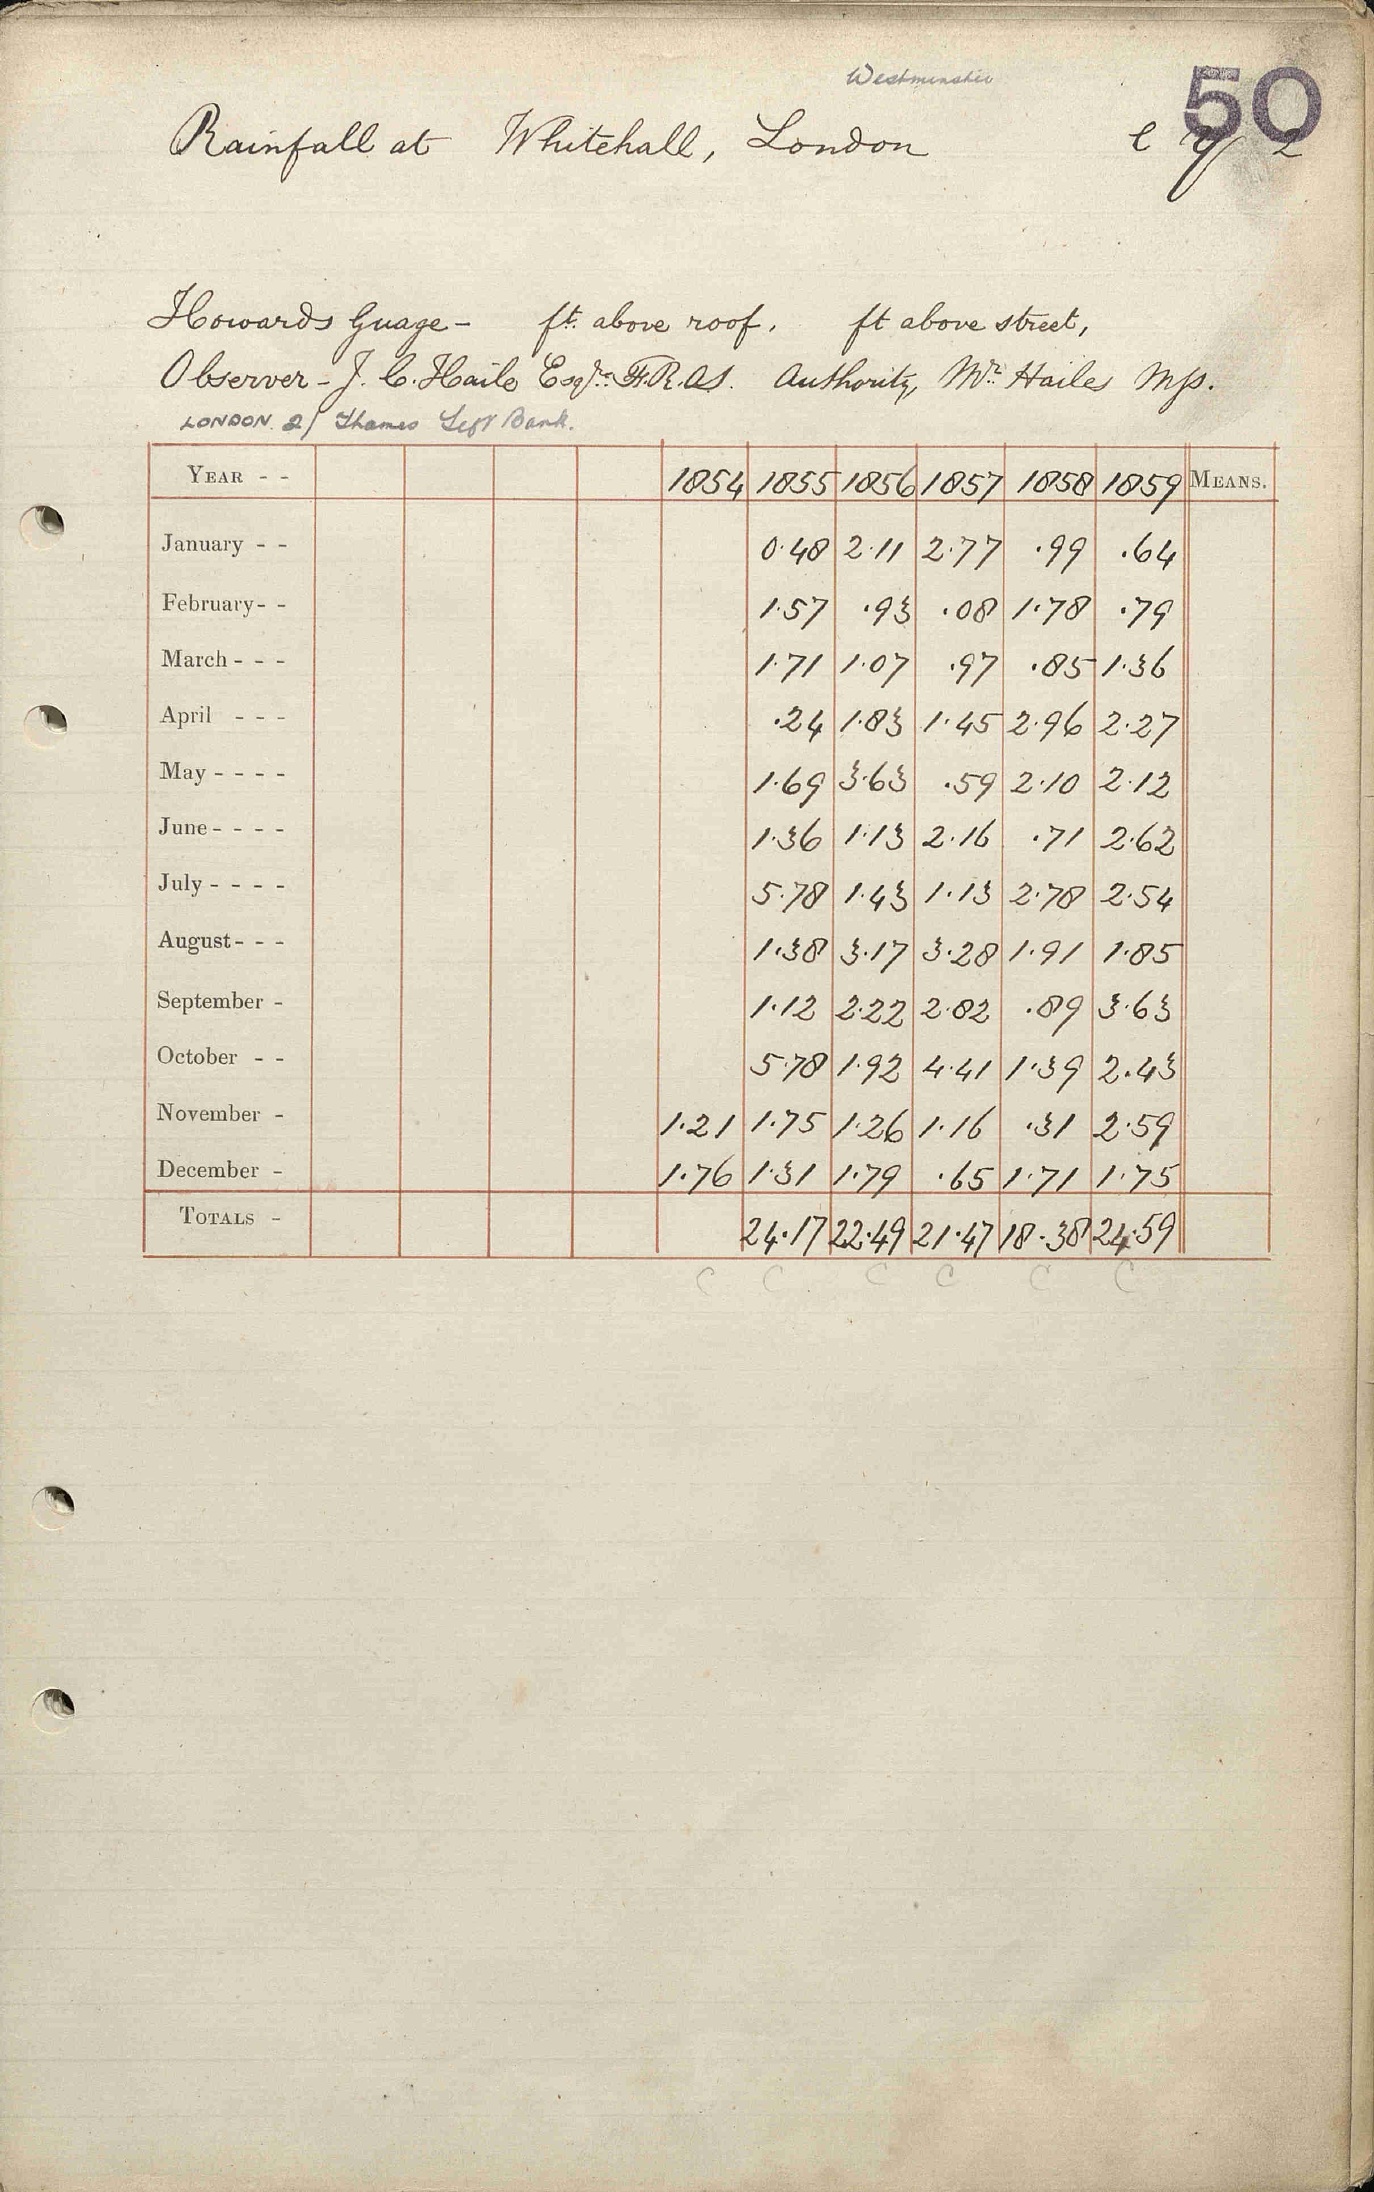 Westminster
50
Rainfall at Whitehall, London
Howards Guage - ft. above roof. ft above street,
Observer - J. C. Haile Esqre. F.R.A.S. Authority, Mr. Hailes Mss.
LONDON. 2/ Thames Left Bank.
YEAR - - 1854 1855 1856 1857 1858 1859 MEANS.
January - - 0.48 2.11 2.77 .99 .64
February - - 1.57 .93 .08 1.78 .79
March - - - 1.71 1.07 .97 .85 1.36
April - - - .24 1.83 1.45 2.96 2.27
May - - - - 1.69 3.63 .59 2.10 2.12
June - - - - 1.36 1.13 2.16 .71 2.62
July - - - - 5.78 1.43 1.13 2.78 2.54
August - - - 1.38 3.17 3.28 1.91 1.85
September - 1.12 2.22 2.82 .89 3.63
October - - 5.78 1.92 4.41 1.39 2.43
November - 1.21 1.75 1.26 1.16 .31 2.59
December - 1.76 1.31 1.79 .65 1.71 1.75
TOTALS - 24.17 22.49 21.47 18.38 24.59
C C C C C C